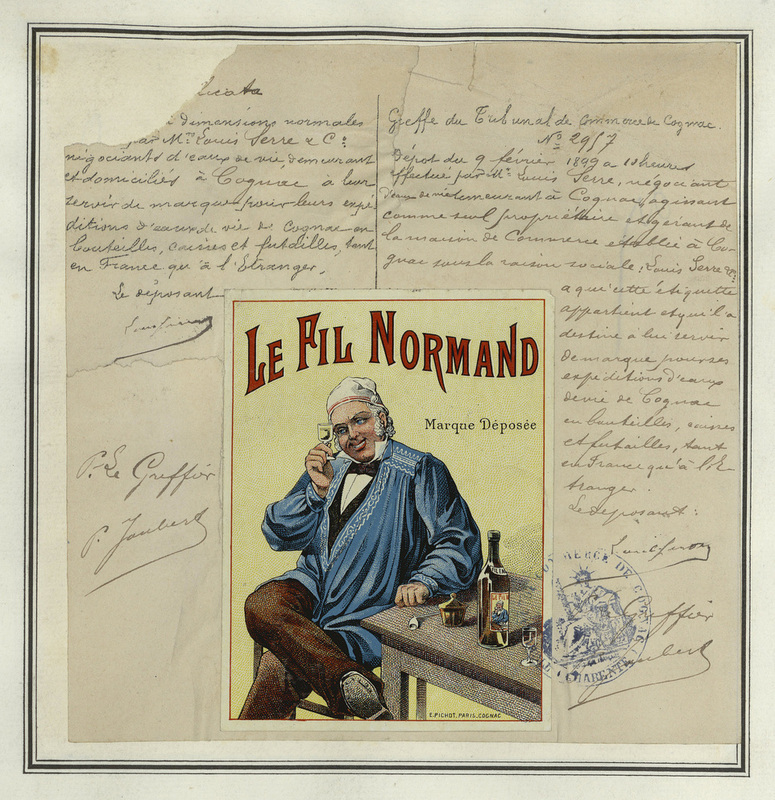 licata
dimensions normales
par Mr. Louis Serre & Cie
négociants d'eaux de vie demeurant
et domiciliés à Cognac à leur
servir de marque pour leurs expé
ditions d'eaux de vie de Cognac en
bouteilles, caisses et futailles, tant
en France qu'à l'Etranger.
Le déposant
P. Le Greffier
P. Joubert
Greffe du Tribunal de Commerce de Cognac.
No 2957
Dépôt du 9 février 1899 à 10 heures
effectué par Mr. Louis Serre, négociant
d'eaux de vie demeurant à Cognac, agissant
comme seul propriétaire et gérant de
la maison de Commerce établie à Co-
gnac sous la raison sociale: Louis Serre & Cie
a qui cette étiquette
appartient et qu'il a
destiné à lui servir
de marque pour ses
expéditions d'eaux
de vie de Cognac
en bouteilles, caisses
et futailles, tant
en France qu'à l'E-
tranger.
Le déposant:
effier
oubert
LE FIL NORMAND
Marque Déposée
E. PICHOT, PARIS, COGNAC
MERCE DE COGNAC
CHARENTE